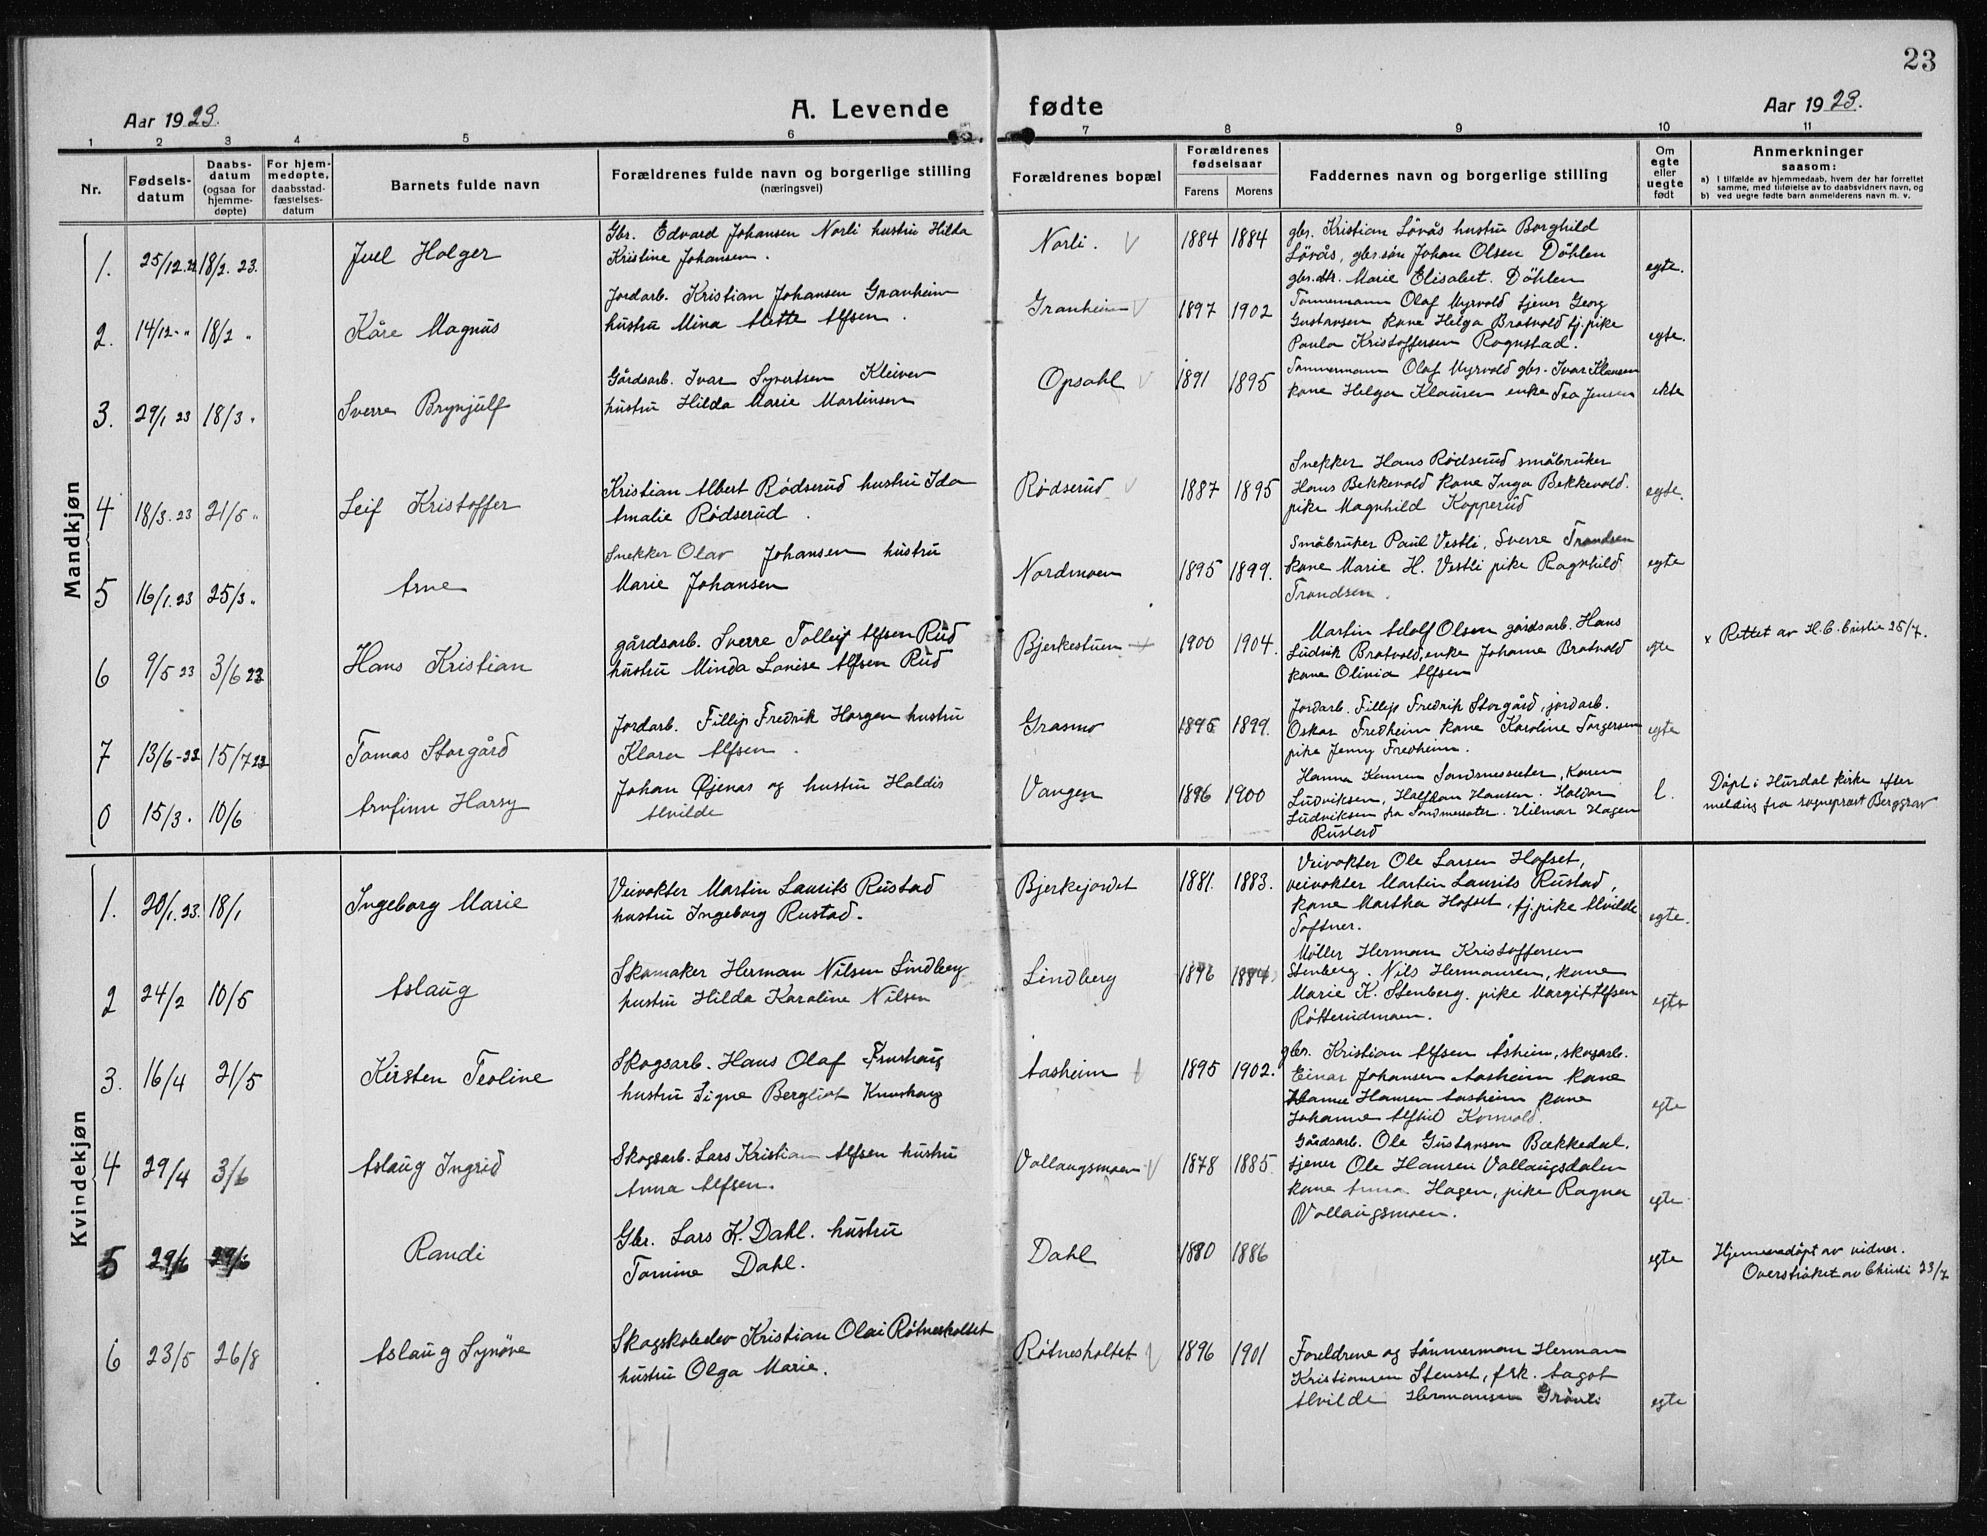 23
Aar 1923.
A. Levende fødte
Aar 1923.
1 2 3 4 5 6 7 8 9 10 11
Nr.
Fødsels-
datum
Daabs-
datum
(ogsaa for
hjemme-
døpte)
For hjem-
medøpte,
daabsstad-
fæstelses-
datum
Barnets fulde navn
Forældrenes fulde navn og borgerlige stilling
(næringsvei)
Forældrenes bopæl
Forældrenes
fødselsaar
Farens Morens
Faddernes navn og borgerlige stilling
Om
egte
eller
uegte
født
Anmerkninger
saasom:
a) I tilfælde av hjemmedaab, hvem der har forrettet
samme, med tilføielse av to daabsvidners navn, og
b) ved uegte fødte barn anmelderens navn m. v.
Mandkjøn
1. 25/12.22 18/2. 23. Juel Holger
Gbr. Edvard Johansen Norli hustru Hilda
Kristine Johansen.
Norli. 1884 1884
gbr. Kristian Lövås hustru Borghild
Lövås, gbr.sön Johan Olsen Döhlen
gbr.dtr. Marie Elisabet. Döhlen
egte.
2. 14/12 - " 18/2 " Kåre Magnus
Jordarb. Kristian Johansen Granheim
hustru Mina Alette Alfsen.
Granheim 1897 1902
Tömmermann Olaf Myrvold tjener Georg
Gustavsen kone Helga Bratvold tj. pike
Paula Kristoffersen Rognstad.
egte.
3. 29/1 23 18/3 " Sverre Brynjulf
Gårdsarb. Ivar Syvertsen Kleiven
hustru Hilda Marie Martinsen
Opsahl 1891 1895
Tømmermann Olaf Myrvold gbr. Ivar Klausen
kone Helga Klausen enke Tea Jensen
ekte
4 18/3. 23 21/5 " Leif Kristoffer
Kristian Albert Rödserud hustru Ida
Amalie Rødserud.
Rødserud 1887 1895
Snekker Hans Rødserud småbruker
Hans Bekkevold kone Inga Bekkevold.
pike Magnhild Kopperud
egte.
5 16/1.23 25/3 " Arne
Snekker Olav Johansen hustru
Marie Johansen
Nordmoen 1895 1899.
Småbruker Paul Vestli, Sverre Trondsen
kone Marie H. Vestli pike Ragnhild
Trondsen.
egte
6 9/5 23 3/6 23 Hans Kristian
gårdsarb. Sverre Tollef Alfsen Rud
hustru Minda Lovise Alfsen Rud
Bjerkestuen 1900 1904.
Martin Adolf Olsen gårdsarb. Hans
Ludvik Bratvold, enke Johanne Bratvold
kone Olivia Alfsen
egte
x Rettet av H.C. Christie 25/7.
7 13/6-23 15/7 23 Tomas Storgård
Jordarb. Fillip Fredrik Horgen hustru
Klara Alfsen.
Grasmo 1895 1899.
Jordarb. Fillip Fredrik Storgård, jordarb.
Oskar Fredheim kone Karoline Torgersen
pike Jenny Fredheim.
egte
0 15/3. 10/6 Arnfinn Harry
Johan Øjenas og hustru Haldis
Alvilde
Vangen 1896 1900
Hanna Sandmosæter, Karen
Ludviksen, Halfdan Hansen. Haldor
Ludviksen fra Sandmosæter. Hilmar Hagen
Rustad
l.
Døpt i Hurdal kirke efter
melding fra sogneprest Berggrav
Kvindekjøn
1. 20/1.23. 18/1 Ingeborg Marie
Veivokter Martin Laurits Rustad
hustru Ingeborg Rustad.
Bjerkejordet 1881. 1883.
Veivokter Ole Larsen Hofset,
veivokter Martin Laurits Rustad,
kone Martha Hofset, tj. pike Alvilde
Toftner.
egte.
2 24/2 10/5 Aslaug
Skomaker Herman Nilsen Lindberg
hustru Hilda Karoline Nilsen
Lindberg 1896 1884
Møller Herman Kristoffersen
Stenberg. Nils Hermansen, kone
Marie K. Stenberg. pike Margit Alfsen
Røtterudmoen.
egte
3. 16/4 21/5 Kirsten Teoline
Skogsarb. Hans Olaf
hustru Signe Bergliot Knurhaug
Aasheim 1895 1902.
gbr. Kristian Alfsen Åsheim, skogarb.
Einar Johansen Aasheim kone
Hanna Hansen Aasheim kone
Johanne Alfhild
egte
4 29/4 3/6 Aslaug Ingrid
Skogsarb. Lars Kristian Alfsen hustru
Anna Alfsen.
Vollaugsmoen 1878 1885.
Gårdsarb. Ole Gustavsen Bækkedal.
tjener Ole Hansen Vollaugsdalen
kone Anna Hagen, pike Ragna
Vollaugsmoen.
egte
5 29/6 29/6 Randi
Gbr. Lars K. Dahl. hustru
Tomine Dahl.
Dahl 1880 1886
egte
Hjemmedøpt av vidner.
Overstrøket av Christie 23/7
6 23/5 26/8 Aslaug Synøve
Skogskoleelev Kristian Olai Røtnesholtet
hustru Olga Marie.
Røtnesholtet 1896 1901
Foreldrene og tömmerman Herman
Kristiansen Stenset, frk. Aagot
Alvilde Hermansen Grønli
egte